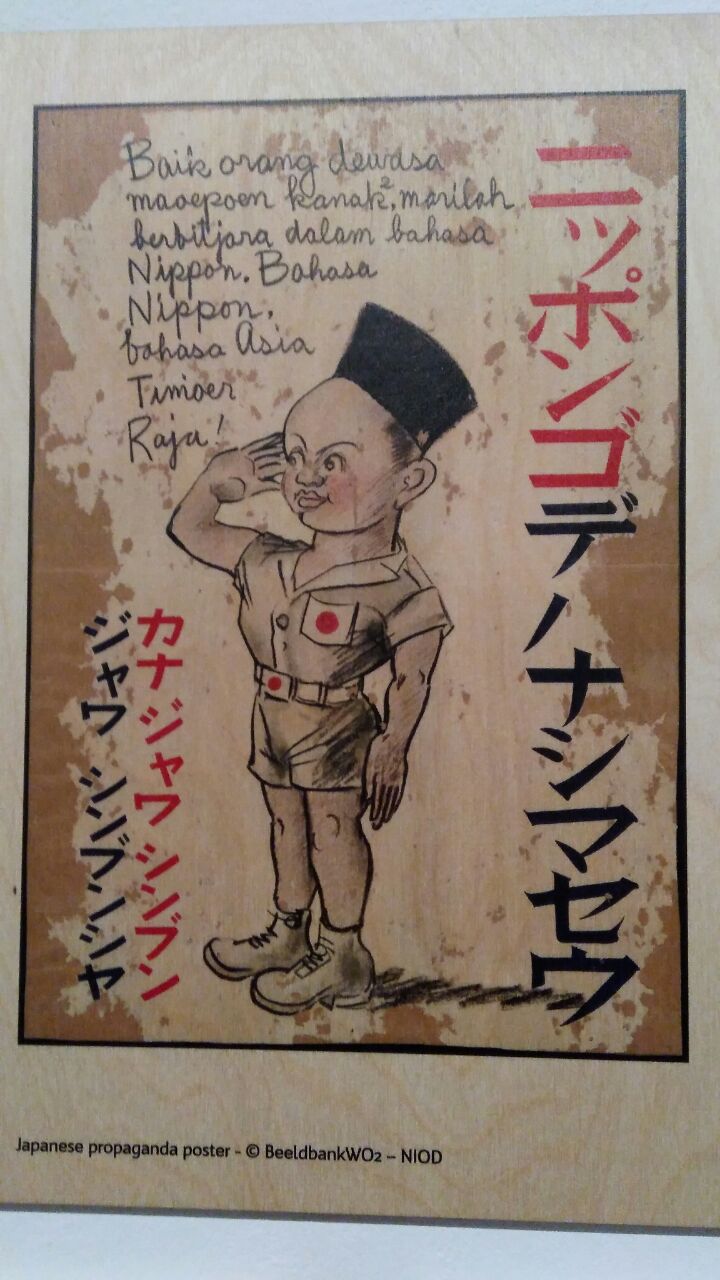 Baik orang dewasa
maoepoen kanak², marilah
berbitjara dalam bahasa
Nippon. Bahasa
Nippon,
bahasa Asia
Timoer
Raja!
ニッポンゴデハナシマセウ
カナジャワシンブン
ジャワ シンブンシャ
Japanese propaganda poster - © BeeldbankWO2 – NIOD